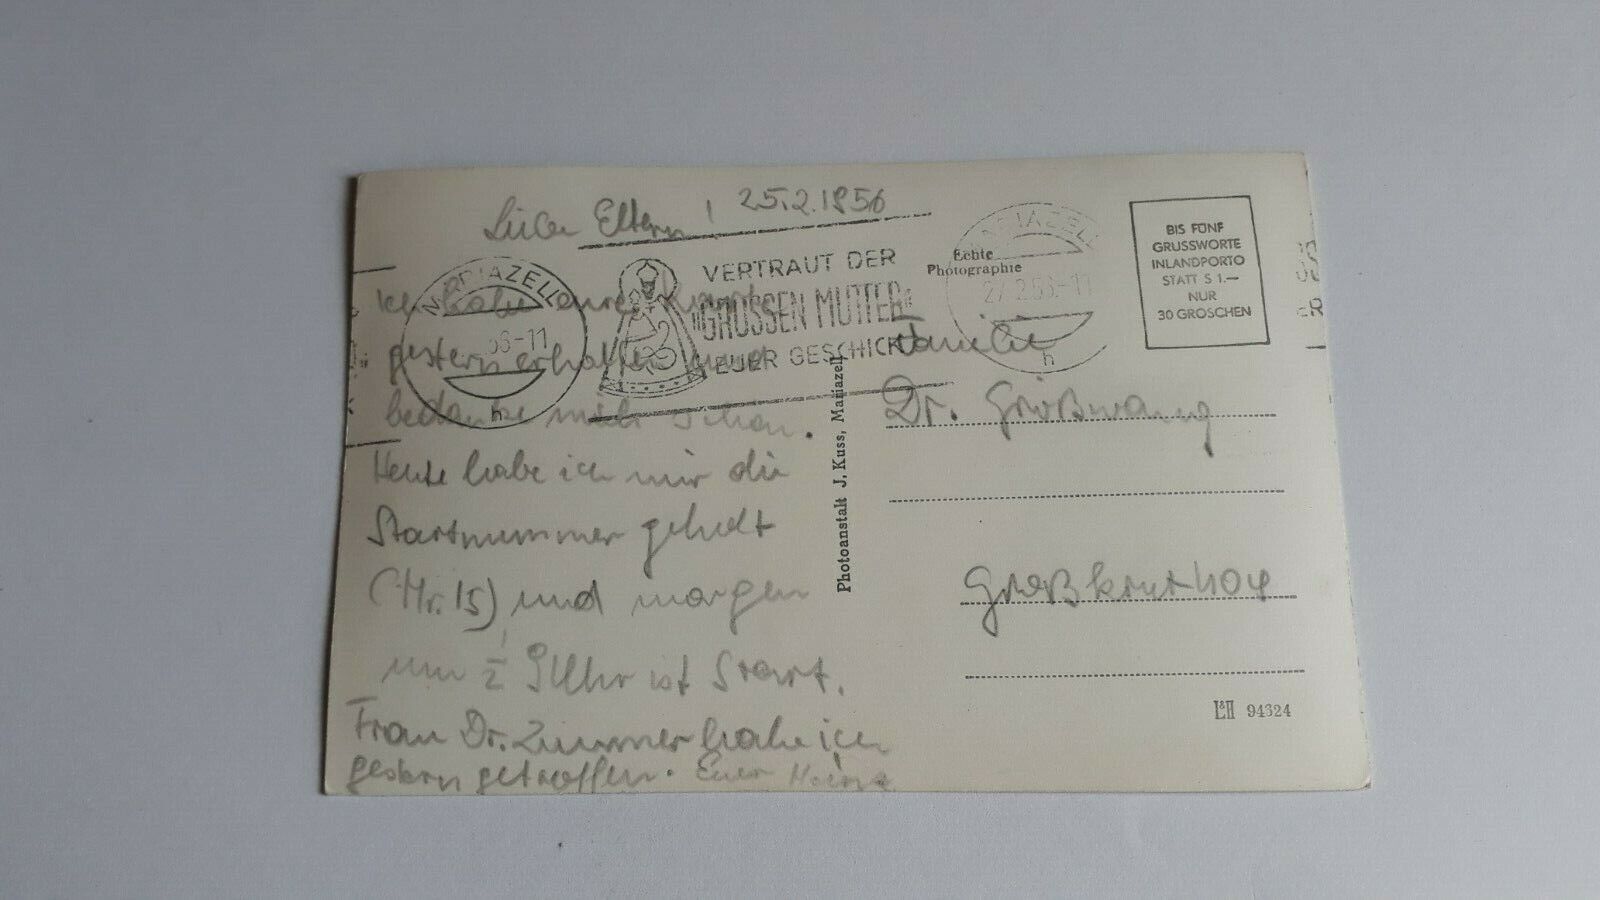 Liebe Eltern! 25.2.1956
Ich habe eure Karte
gestern erhalten und
bedanke mich schön.
Heute habe ich mir die
Startnummer geholt
(Nr. 15) und morgen
um ½ 9 Uhr ist Start.
Frau Dr. Zimmer habe ich
gestern getroffen. Euer Heinz
MARIAZELL
56-11
h
VERTRAUT DER
"GROSSEN MUTTER"
EUER GESCHICK
Echte
Photographie
MARIAZELL
27.2.56-11
h
BIS FÜNF
GRUSSWORTE
INLANDPORTO
STATT S 1.—
NUR
30 GROSCHEN
ER
Photoanstalt J. Kuss, Mariazell
Familie
Dr. Größwang
Großkrut 404
L&H 94324